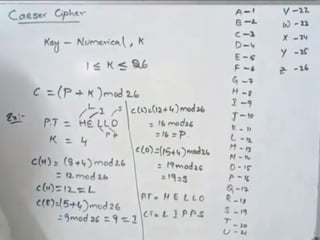 Caeser Cipher
Key - Numerical, K
1 ≤ K ≤ 26
C = (P + K) mod 26
L I S
Ex:- P.T = HELLO
P P
K = 4
C(H) = (8+4) mod 26
= 12 mod 26
C(H) = 12 = L
C(E) = (5+4) mod 26
= 9 mod 26 = 9 = I
C(L) = (12+4) mod 26
= 16 mod 26
= 16 = P.
C(O) = (15+4) mod 26
= 19 mod 26
= 19 = S
P.T = HELLO
C.T = LIPPS
A - 1
B - 2
C - 3
D - 4
E - 5
F - 6
G - 7
H - 8
I - 9
J - 10
K - 11
L - 12
M - 13
N - 14
O - 15
P - 16
Q - 17
R - 18
S - 19
T - 20
U - 21
V - 22
W - 23
X - 24
Y - 25
Z - 26